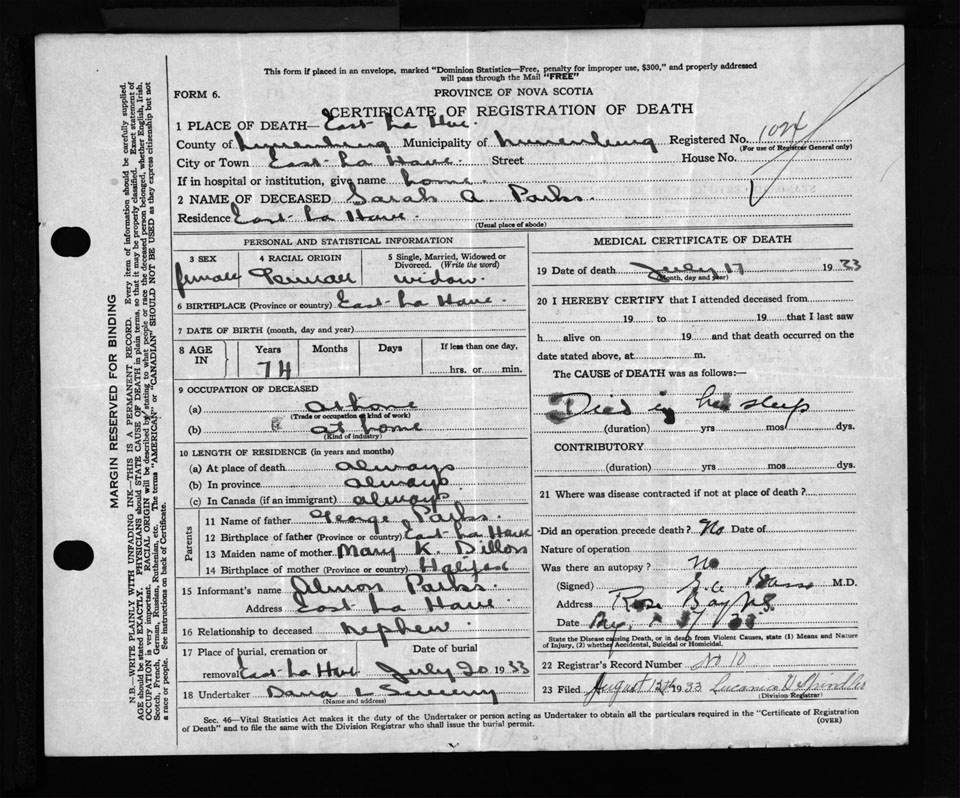 This form if placed in an envelope, marked "Dominion Statistics—Free, penalty for improper use, $300," and properly addressed
will pass through the Mail "FREE"
FORM 6.
PROVINCE OF NOVA SCOTIA
CERTIFICATE OF REGISTRATION OF DEATH
1 PLACE OF DEATH— East La Have.
County of Lunenburg Municipality of Lunenburg Registered No. 1024
(For use of Registrar General only)
City or Town East La Have. Street House No.
If in hospital or institution, give name home.
2 NAME OF DECEASED Sarah A Parks.
Residence East La Have.
(Usual place of abode)
PERSONAL AND STATISTICAL INFORMATION
3 SEX
female
4 RACIAL ORIGIN
5 Single, Married, Widowed or
Divorced. (Write the word)
widow.
6 BIRTHPLACE (Province or country) East La Have.
7 DATE OF BIRTH (month, day and year)
8 AGE IN
Years Months Days If less than one day,
74 hrs. or min.
9 OCCUPATION OF DECEASED
(a) at home
(Trade or occupation kind of work)
(b) at home
(Kind of industry)
10 LENGTH OF RESIDENCE (in years and months)
(a) At place of death always
(b) In province always.
(c) In Canada (if an immigrant) always
Parents
11 Name of father George Parks.
12 Birthplace of father (Province or country) East La Have
13 Maiden name of mother Mary K. Dillon
14 Birthplace of mother (Province or country) Halifax
15 Informant's name Almon Parks.
Address East La Have
16 Relationship to deceased nephew.
17 Place of burial, cremation or Date of burial
removal East La Have July 20 1933
18 Undertaker Dana L
(Name and address)
MEDICAL CERTIFICATE OF DEATH
19 Date of death July 17 1933
(Month, day and year)
20 I HEREBY CERTIFY that I attended deceased from
19 to 19 that I last saw
h alive on 19 and that death occurred on the
date stated above, at m.
The CAUSE of DEATH was as follows:—
Died in her sleep
(duration) yrs mos dys.
CONTRIBUTORY
(duration) yrs mos dys.
21 Where was disease contracted if not at place of death?
Did an operation precede death? No Date of
Nature of operation
Was there an autopsy? No
(Signed) M.D.
Address Rose Bay NS.
Date
State the Disease causing Death, or in death from Violent Causes, state (1) Means and Nature
of Injury, (2) whether Accidental, Suicidal or Homicidal.
22 Registrar's Record Number No 10
23 Filed August 12th 1933 Spindler
(Division Registrar)
Sec. 46—Vital Statistics Act makes it the duty of the Undertaker or person acting as Undertaker to obtain all the particulars required in the "Certificate of Registration
of Death" and to file the same with the Division Registrar who shall issue the burial permit. (OVER)
MARGIN RESERVED FOR BINDING
N.B.—WRITE PLAINLY WITH UNFADING INK—THIS IS A PERMANENT RECORD. Every item of information should be carefully supplied.
AGE should be stated EXACTLY. PHYSICIANS should STATE CAUSE OF DEATH in plain terms, so that it may be properly classified. Exact statement of
OCCUPATION is very important. RACIAL ORIGIN will be described by stating to what people or race the deceased person belonged, whether English, Irish,
Scotch, French, German, Russian, Ruthenian, etc. The terms "AMERICAN" or "CANADIAN" SHOULD NOT BE USED as they express citizenship but not
a race or people. See instructions on back of Certificate.